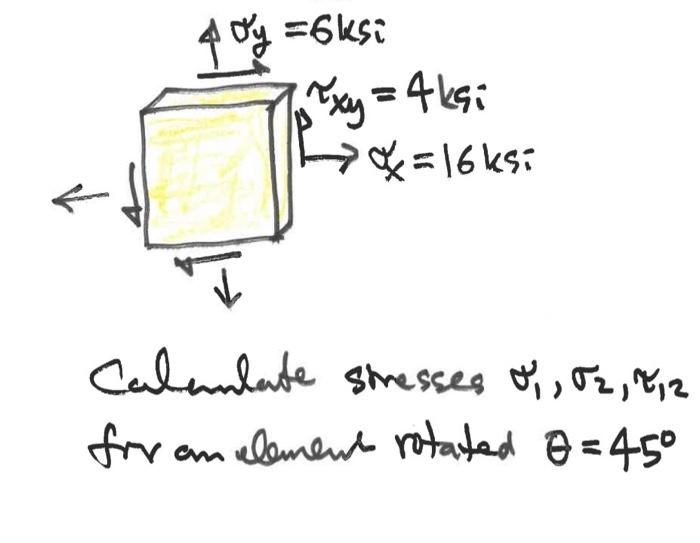 σy = 6 ksi
τxy = 4 ksi
σx = 16 ksi
Calculate stresses σ1, σ2, τ12
for an element rotated θ = 45°